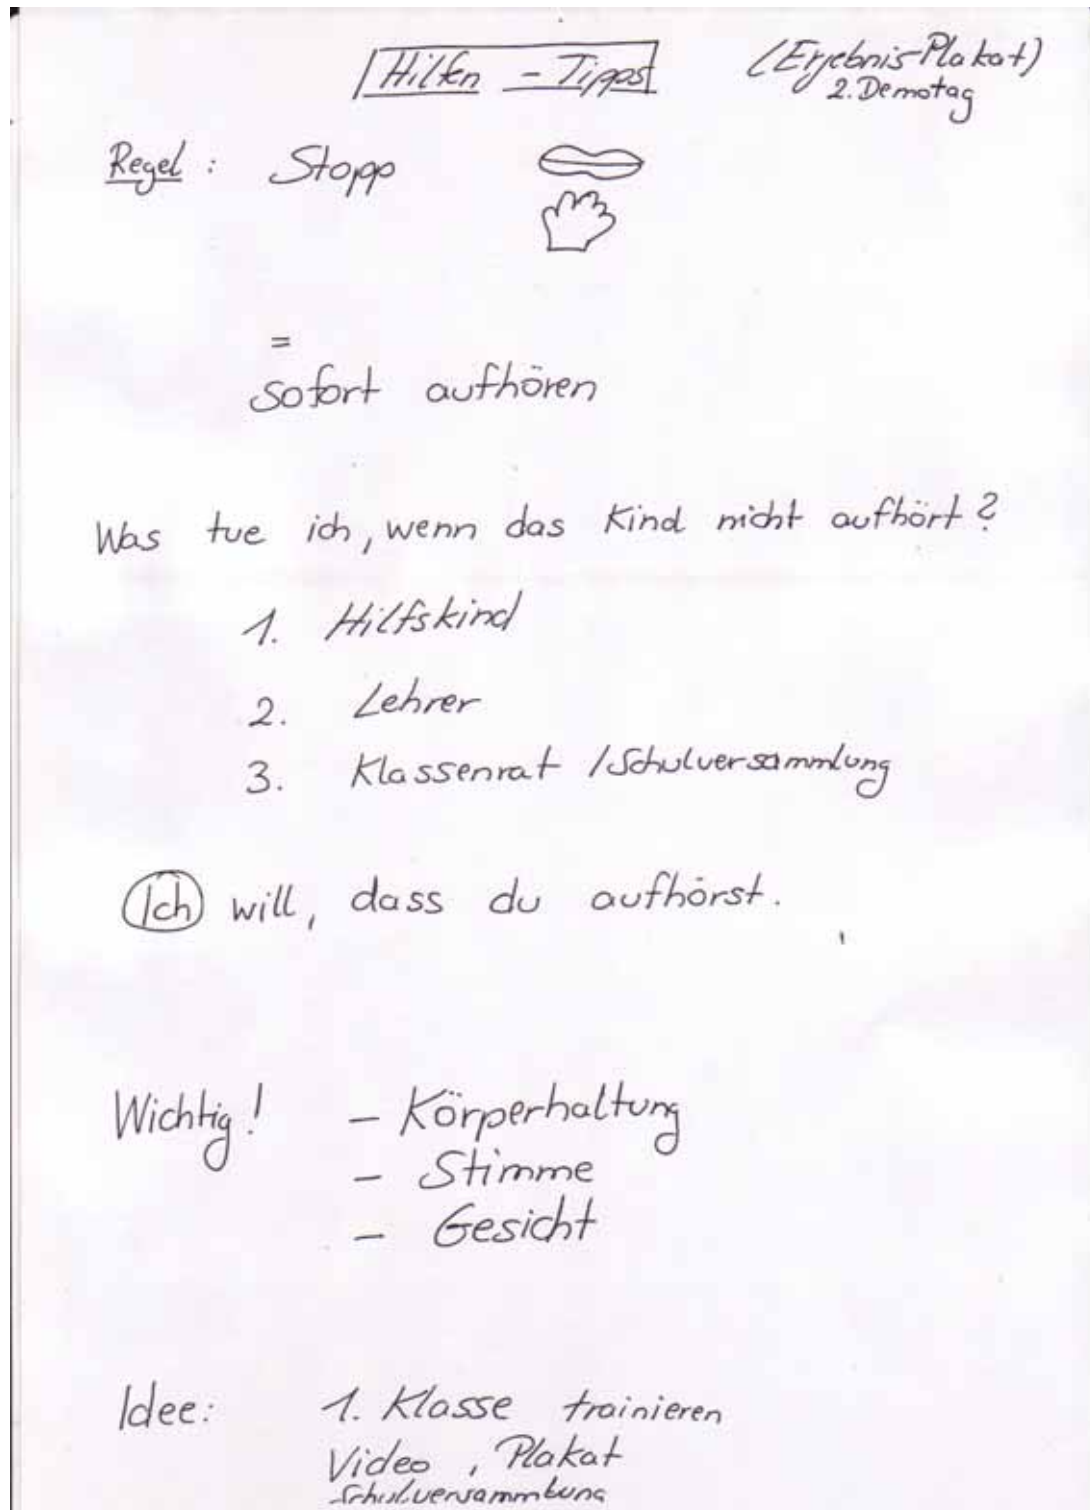 Hilfen - Tipps
(Ergebnis-Plakat)
2. Demotag
Regel: Stopp
=
sofort aufhören
Was tue ich, wenn das Kind nicht aufhört?
1. Hilfskind
2. Lehrer
3. Klassenrat / Schulversammlung
Ich will, dass du aufhörst.
Wichtig! - Körperhaltung
- Stimme
- Gesicht
Idee: 1. Klasse trainieren
Video, Plakat
Schulversammlung